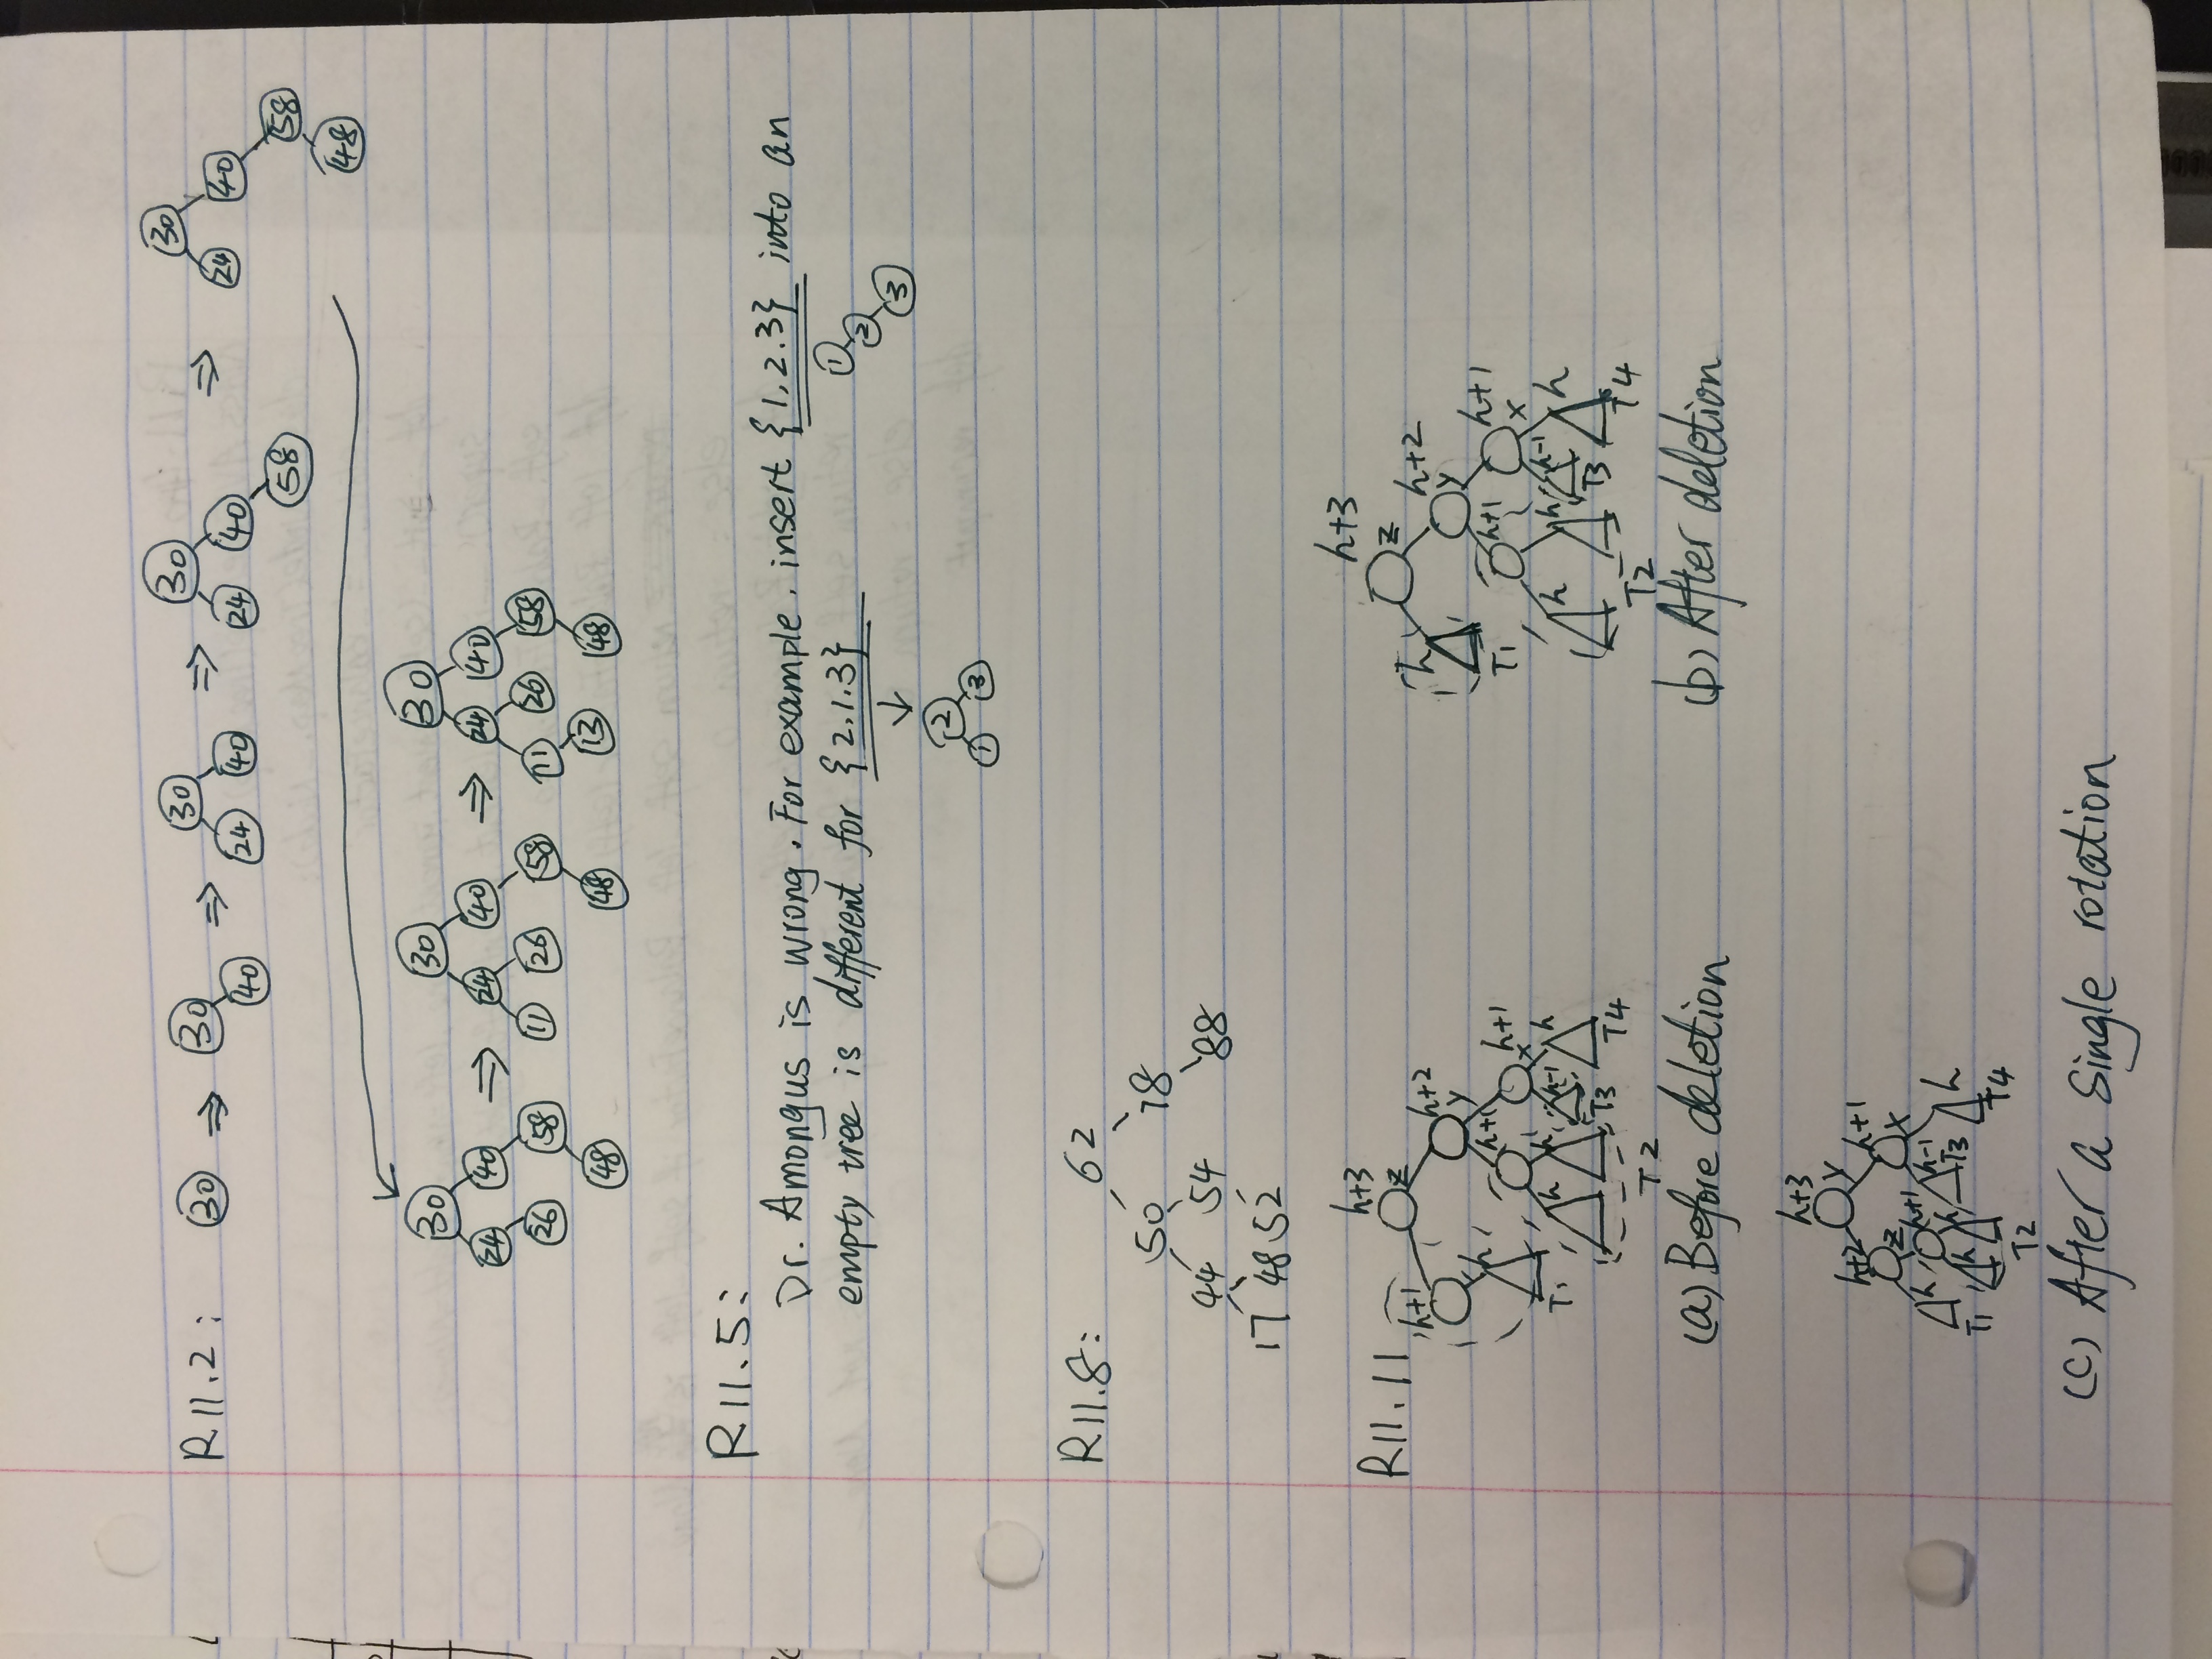 R11.2: 30 ⇒ 30 40 ⇒ 30 24 40 ⇒ 30 24 40 58 ⇒ 30 24 40 58 48
30 24 40 26 58 48 ⇒ 30 24 40 11 26 58 48 ⇒ 30 24 40 11 26 58 13 48
R11.5:
Dr. Amongus is wrong. For example. insert {1,2.3} into an
empty tree is different for {2.1.3}
1
2
3
↓
2
1 3
R11.8: 62
50 78
44 54 88
17 48 52
R11.11
h+3
z
h+1 h+2
y
h h+1 h+1
x
T1 h h h-1 h
T3 T4
T2
(a) Before deletion
h+3
z
h h+2
y
T1 h+1 h+1
x
h h h-1 h
T3 T4
T2
(b) After deletion
h+3
y
h+2 h+1
z x
h h+1 h-1
T3 h
T1 h h T4
T2
(c) After a single rotation